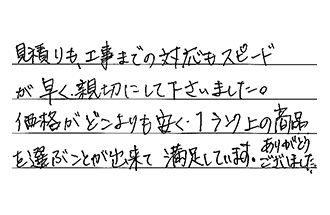 見積りも、工事までの対応もスピード
が早く、親切にして下さいました。
価格がどこよりも安く、1ランク上の商品
を選ぶことが出来て満足しています。ありがとう
ございました。